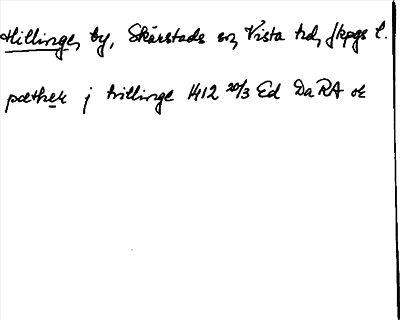 Hillinge, by, Skärstads sn, Vista hd, Jkpgs l.
pæthek j hillinge 1412 20/3 Ed DaRA or